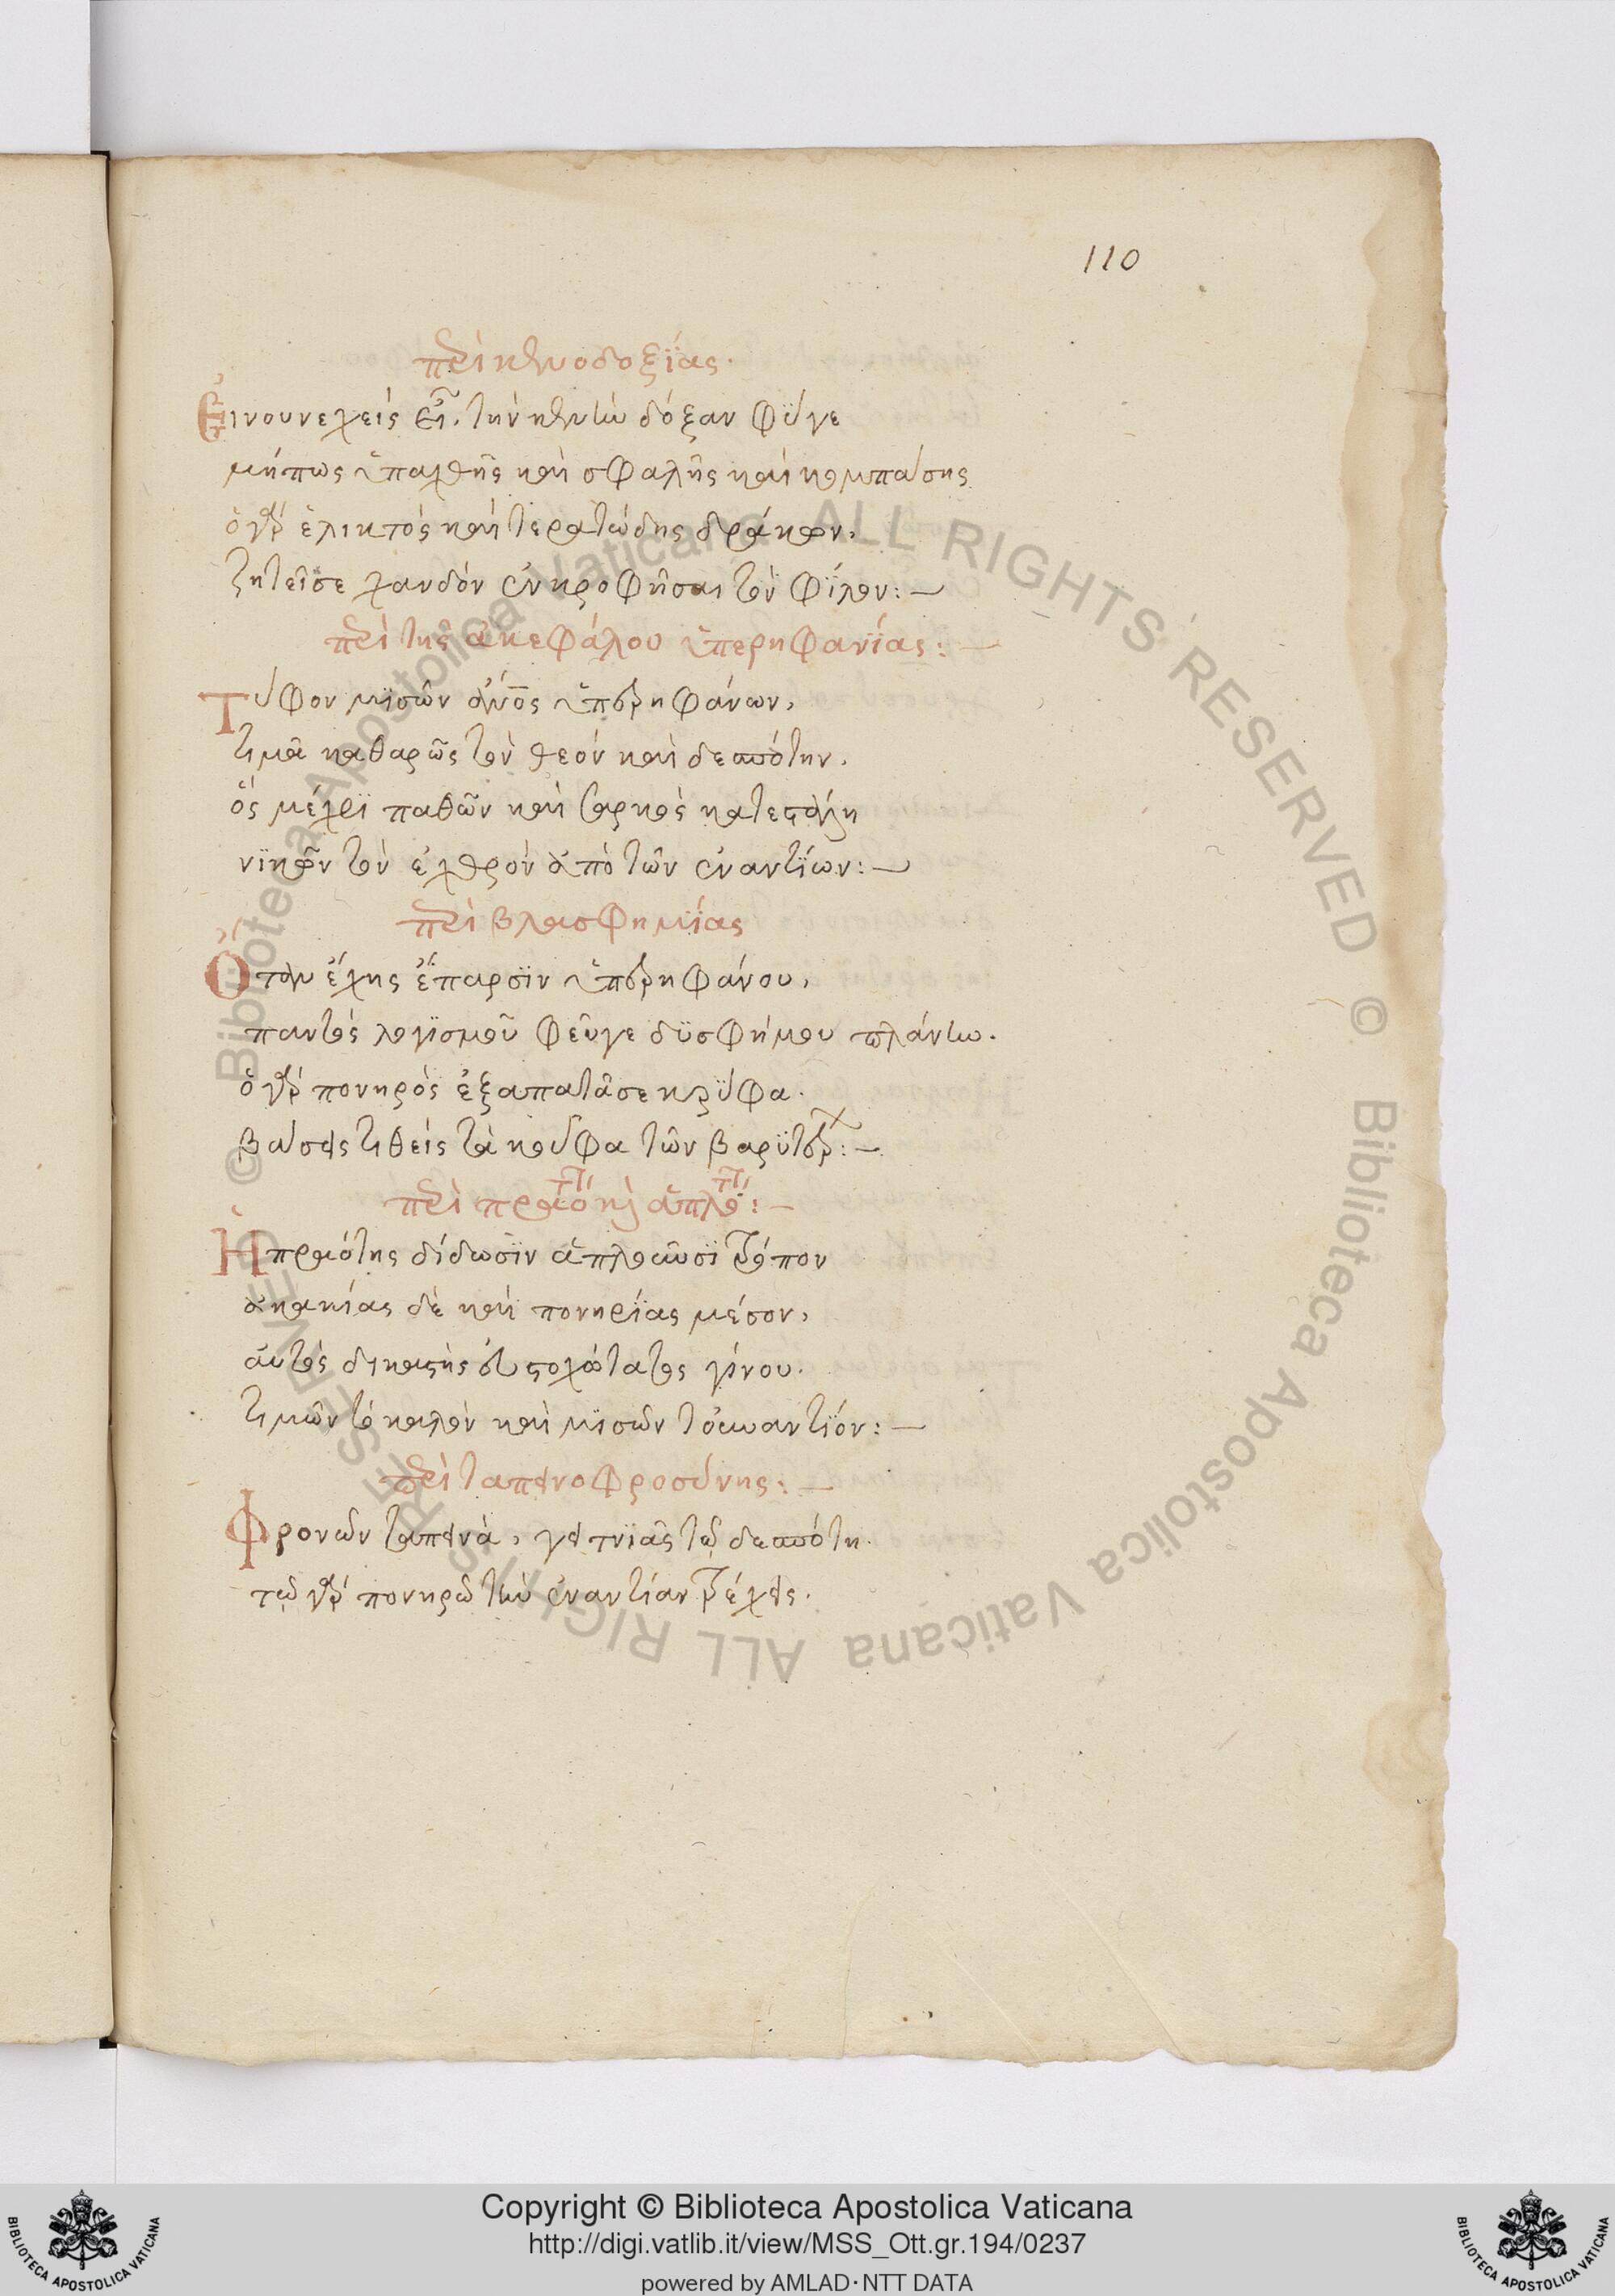 110
περὶ κενοδοξΐας.
Εἰ νουνεχεὶς εἶ. τὴν κενὴν δόξαν φΰγε
μήπως ἐπαρθῆς καὶ σφαλῆς καὶ κομπάσης
ὁ γὰρ ἑλικτὸς καὶ τερατώδης δράκων,
ζητεῖ σε χανδὸν ἐκροφῆσαι τὸν φΐλον:—
περὶ τῆς ἀκεφάλου ὑπερηφανΐας:—
Τύφον μϊσῶν ἄνο̅ς ὑπερηφάνων,
τιμᾶ καθαρῶς τὸν θεὸν καὶ δεσπότην.
ὃς μέχρϊ παθῶν καὶ σαρκὸς κατεστάλη
νϊκῶν τὸν ἐχθρὸν ἀπὸ τῶν ἐναντΐων:—
περὶ βλασφημΐας
Ὅταν ἔχης ἔπαρσϊν ὑπερηφάνου,
παντὸς λογϊσμοῦ φεῦγε δϋσφήμου πλάνην.
ὁ γὰρ πονηρὸς ἐξαπατᾶ σε κρΰφα.
βάσεις τιθεὶς τὰ κοῦφα τῶν βαρϋτέρ:—
περὶ πραότητ κὶ ἁπλότητ:—
Ἡ πραότης δίδωσϊν ἁπλοῦσϊ τρόπον
ἀκακίας δὲ καὶ πονηρΐας μέσον,
αὐτὸς δικαστὴς εὐστοχώτατος γίνου.
τιμῶν τὸ καλὸν καὶ μϊσῶν τοὐναντΐον:—
περὶ ταπεινοφροσύνης:—
Φρονῶν ταπεινὰ, γειτνϊᾶς τῷ δεσπότη.
τῷ γὰρ πονηρῷ τὴν ἐναντίαν τρέχεις.
Copyright © Biblioteca Apostolica Vaticana
http://digi.vatlib.it/view/MSS_Ott.gr.194/0237
powered by AMLAD·NTT DATA
BIBLIOTECA APOSTOLICA VATICANA
BIBLIOTECA APOSTOLICA VATICANA
© Biblioteca Apostolica Vaticana ALL RIGHTS RESERVED © Biblioteca Apostolica Vaticana ALL RIGHTS RESERVED